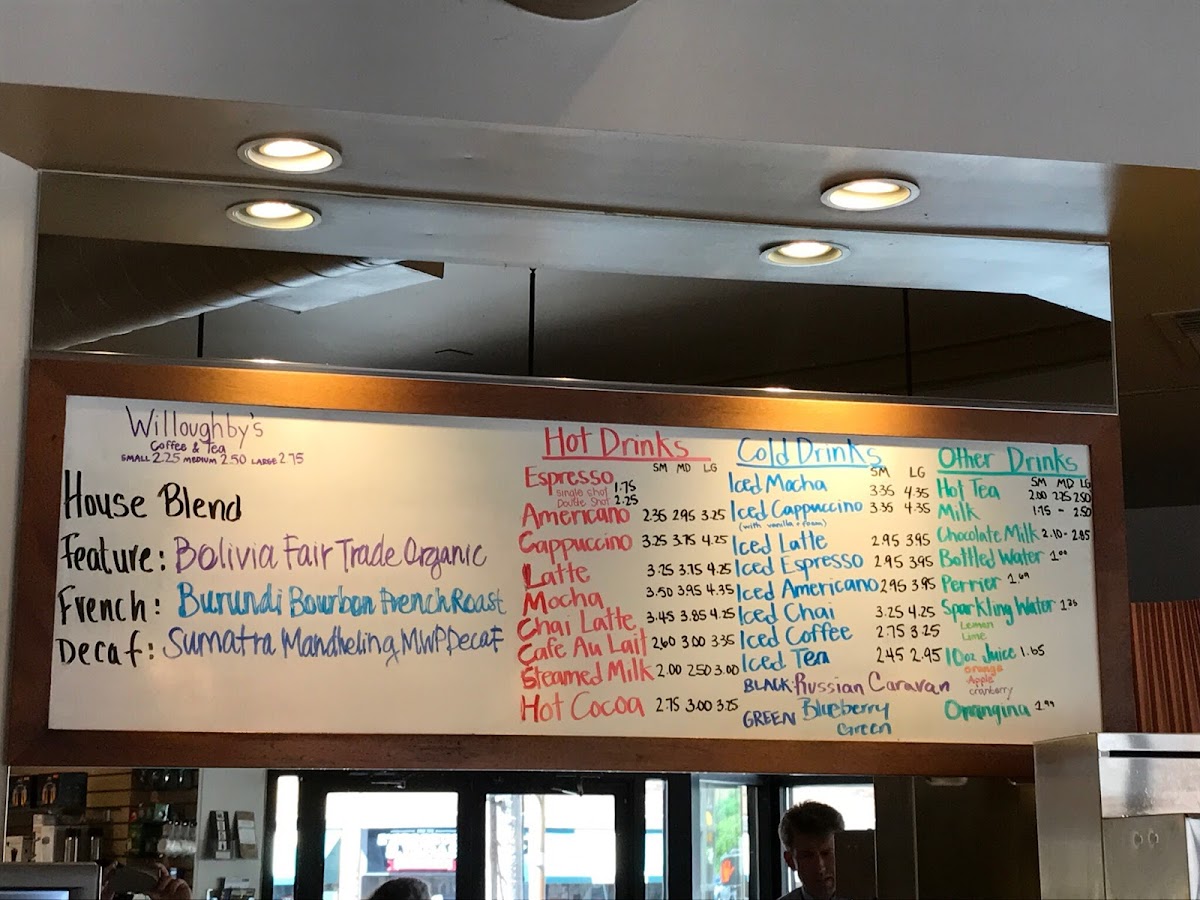 Willoughby's
Coffee & Tea
SMALL 2.25 MEDIUM 2.50 LARGE 2.75
House Blend
Feature: Bolivia Fair Trade Organic
French: Burundi Bourbon French Roast
Decaf: Sumatra Mandheling MWP Decaf
Hot Drinks
SM MD LG
Espresso
single shot 1.75
Double Shot 2.25
Americano 2.35 2.95 3.25
Cappuccino 3.25 3.75 4.25
Latte 3.25 3.75 4.25
Mocha 3.50 3.95 4.35
Chai Latte 3.45 3.85 4.25
Cafe Au Lait 2.60 3.00 3.35
Steamed Milk 2.00 2.50 3.00
Hot Cocoa 2.75 3.00 3.25
Cold Drinks
SM LG
Iced Mocha 3.35 4.35
Iced Cappuccino 3.35 4.35
(with vanilla + foam)
Iced Latte 2.95 3.95
Iced Espresso 2.95 3.95
Iced Americano 2.95 3.95
Iced Chai 3.25 4.25
Iced Coffee 2.75 3.25
Iced Tea 2.45 2.95
BLACK: Russian Caravan
GREEN Blueberry
Green
Other Drinks
SM MD LG
Hot Tea 2.00 2.25 2.50
Milk 1.75 - 2.50
Chocolate Milk 2.10 - 2.85
Bottled Water 1.00
Perrier 1.69
Sparkling Water 1.25
Lemon
Lime
10oz Juice 1.65
orange
Apple
cranberry
Orangina 1.99